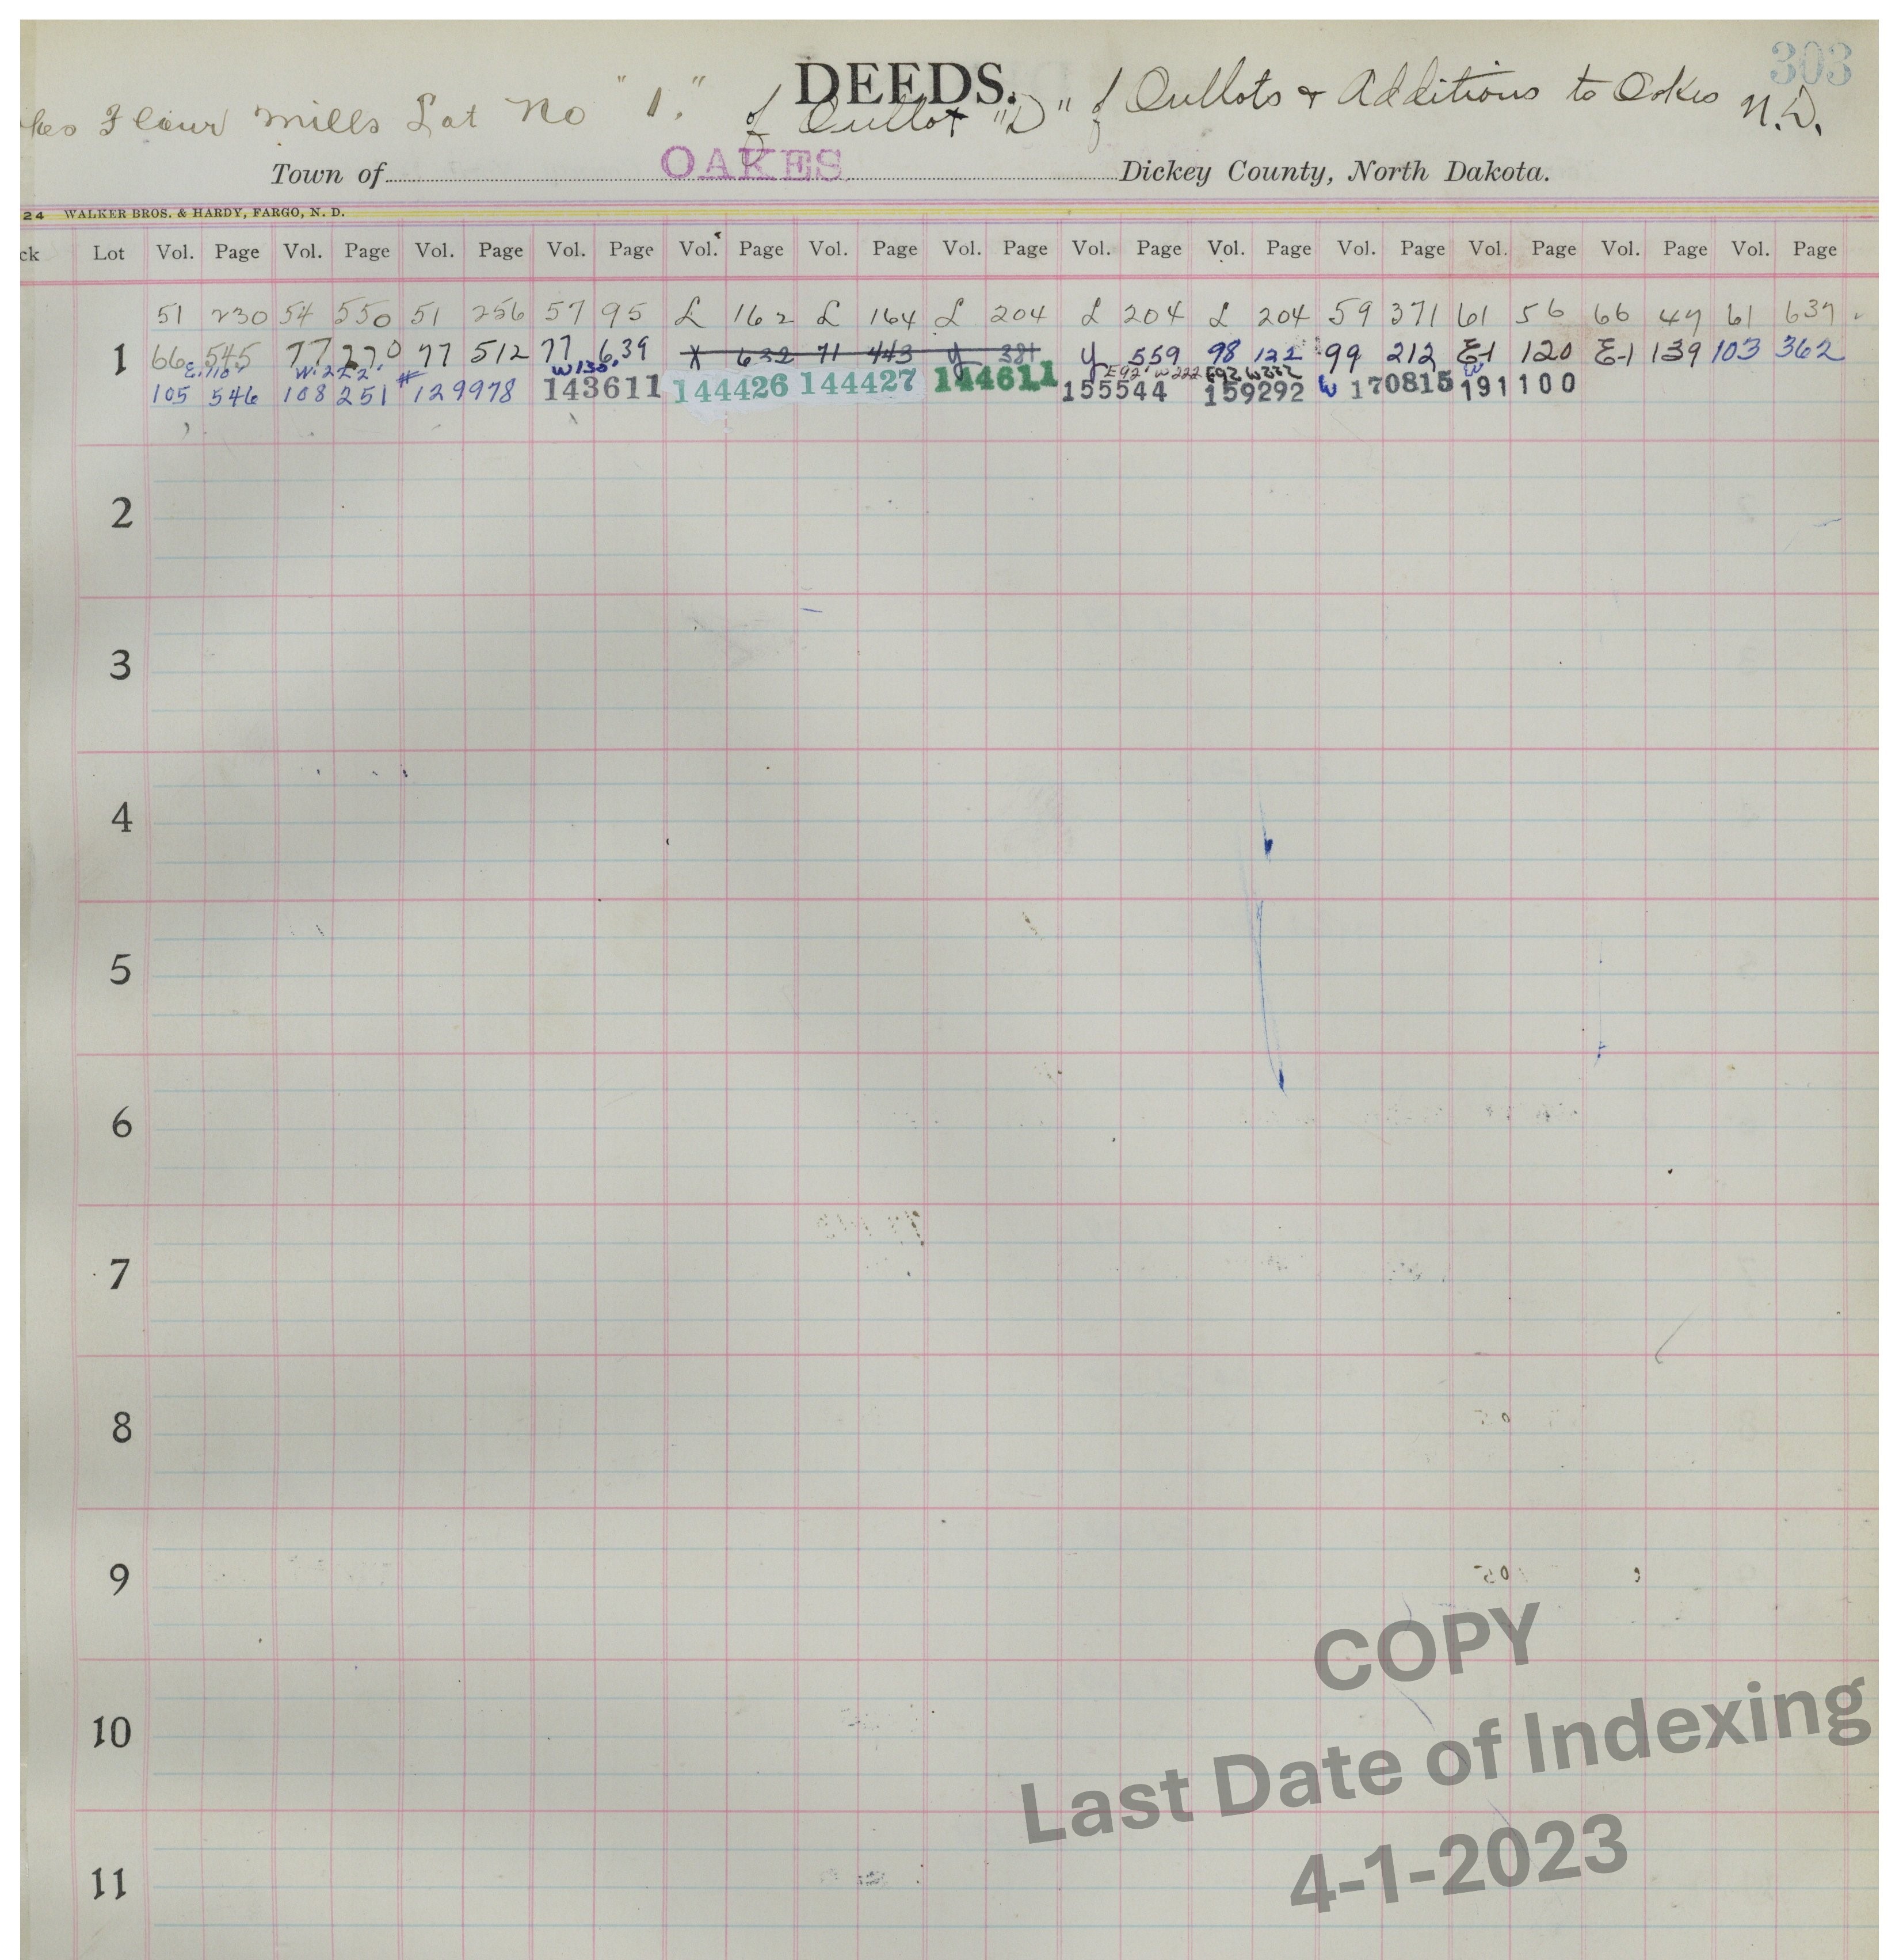 303
DEEDS.
Flour Mills Lot No "1." of Outlot "D" of Outlots & Additions to Oakes N.D.
Town of OAKES Dickey County, North Dakota.
24 WALKER BROS. & HARDY, FARGO, N. D.
ck Lot Vol. Page Vol. Page Vol. Page Vol. Page Vol. Page Vol. Page Vol. Page Vol. Page Vol. Page Vol. Page Vol. Page Vol. Page Vol. Page
51 230 54 550 51 256 57 95 L 162 L 164 L 204 L 204 L 204 59 371 61 56 66 47 61 637
1 66 545 77 270 77 512 77 639 X 632 71 443 y 381 y 559 98 122 99 212 E-1 120 E-1 139 103 362
W. 222' W 130' E92' W222 E92 W222 W
105 546 108 251 # 129978 143611 144426 144427 144611 155544 159292 W 170815 191100
2
3
4
5
6
7
8
9
10
11
COPY
Last Date of Indexing
4-1-2023